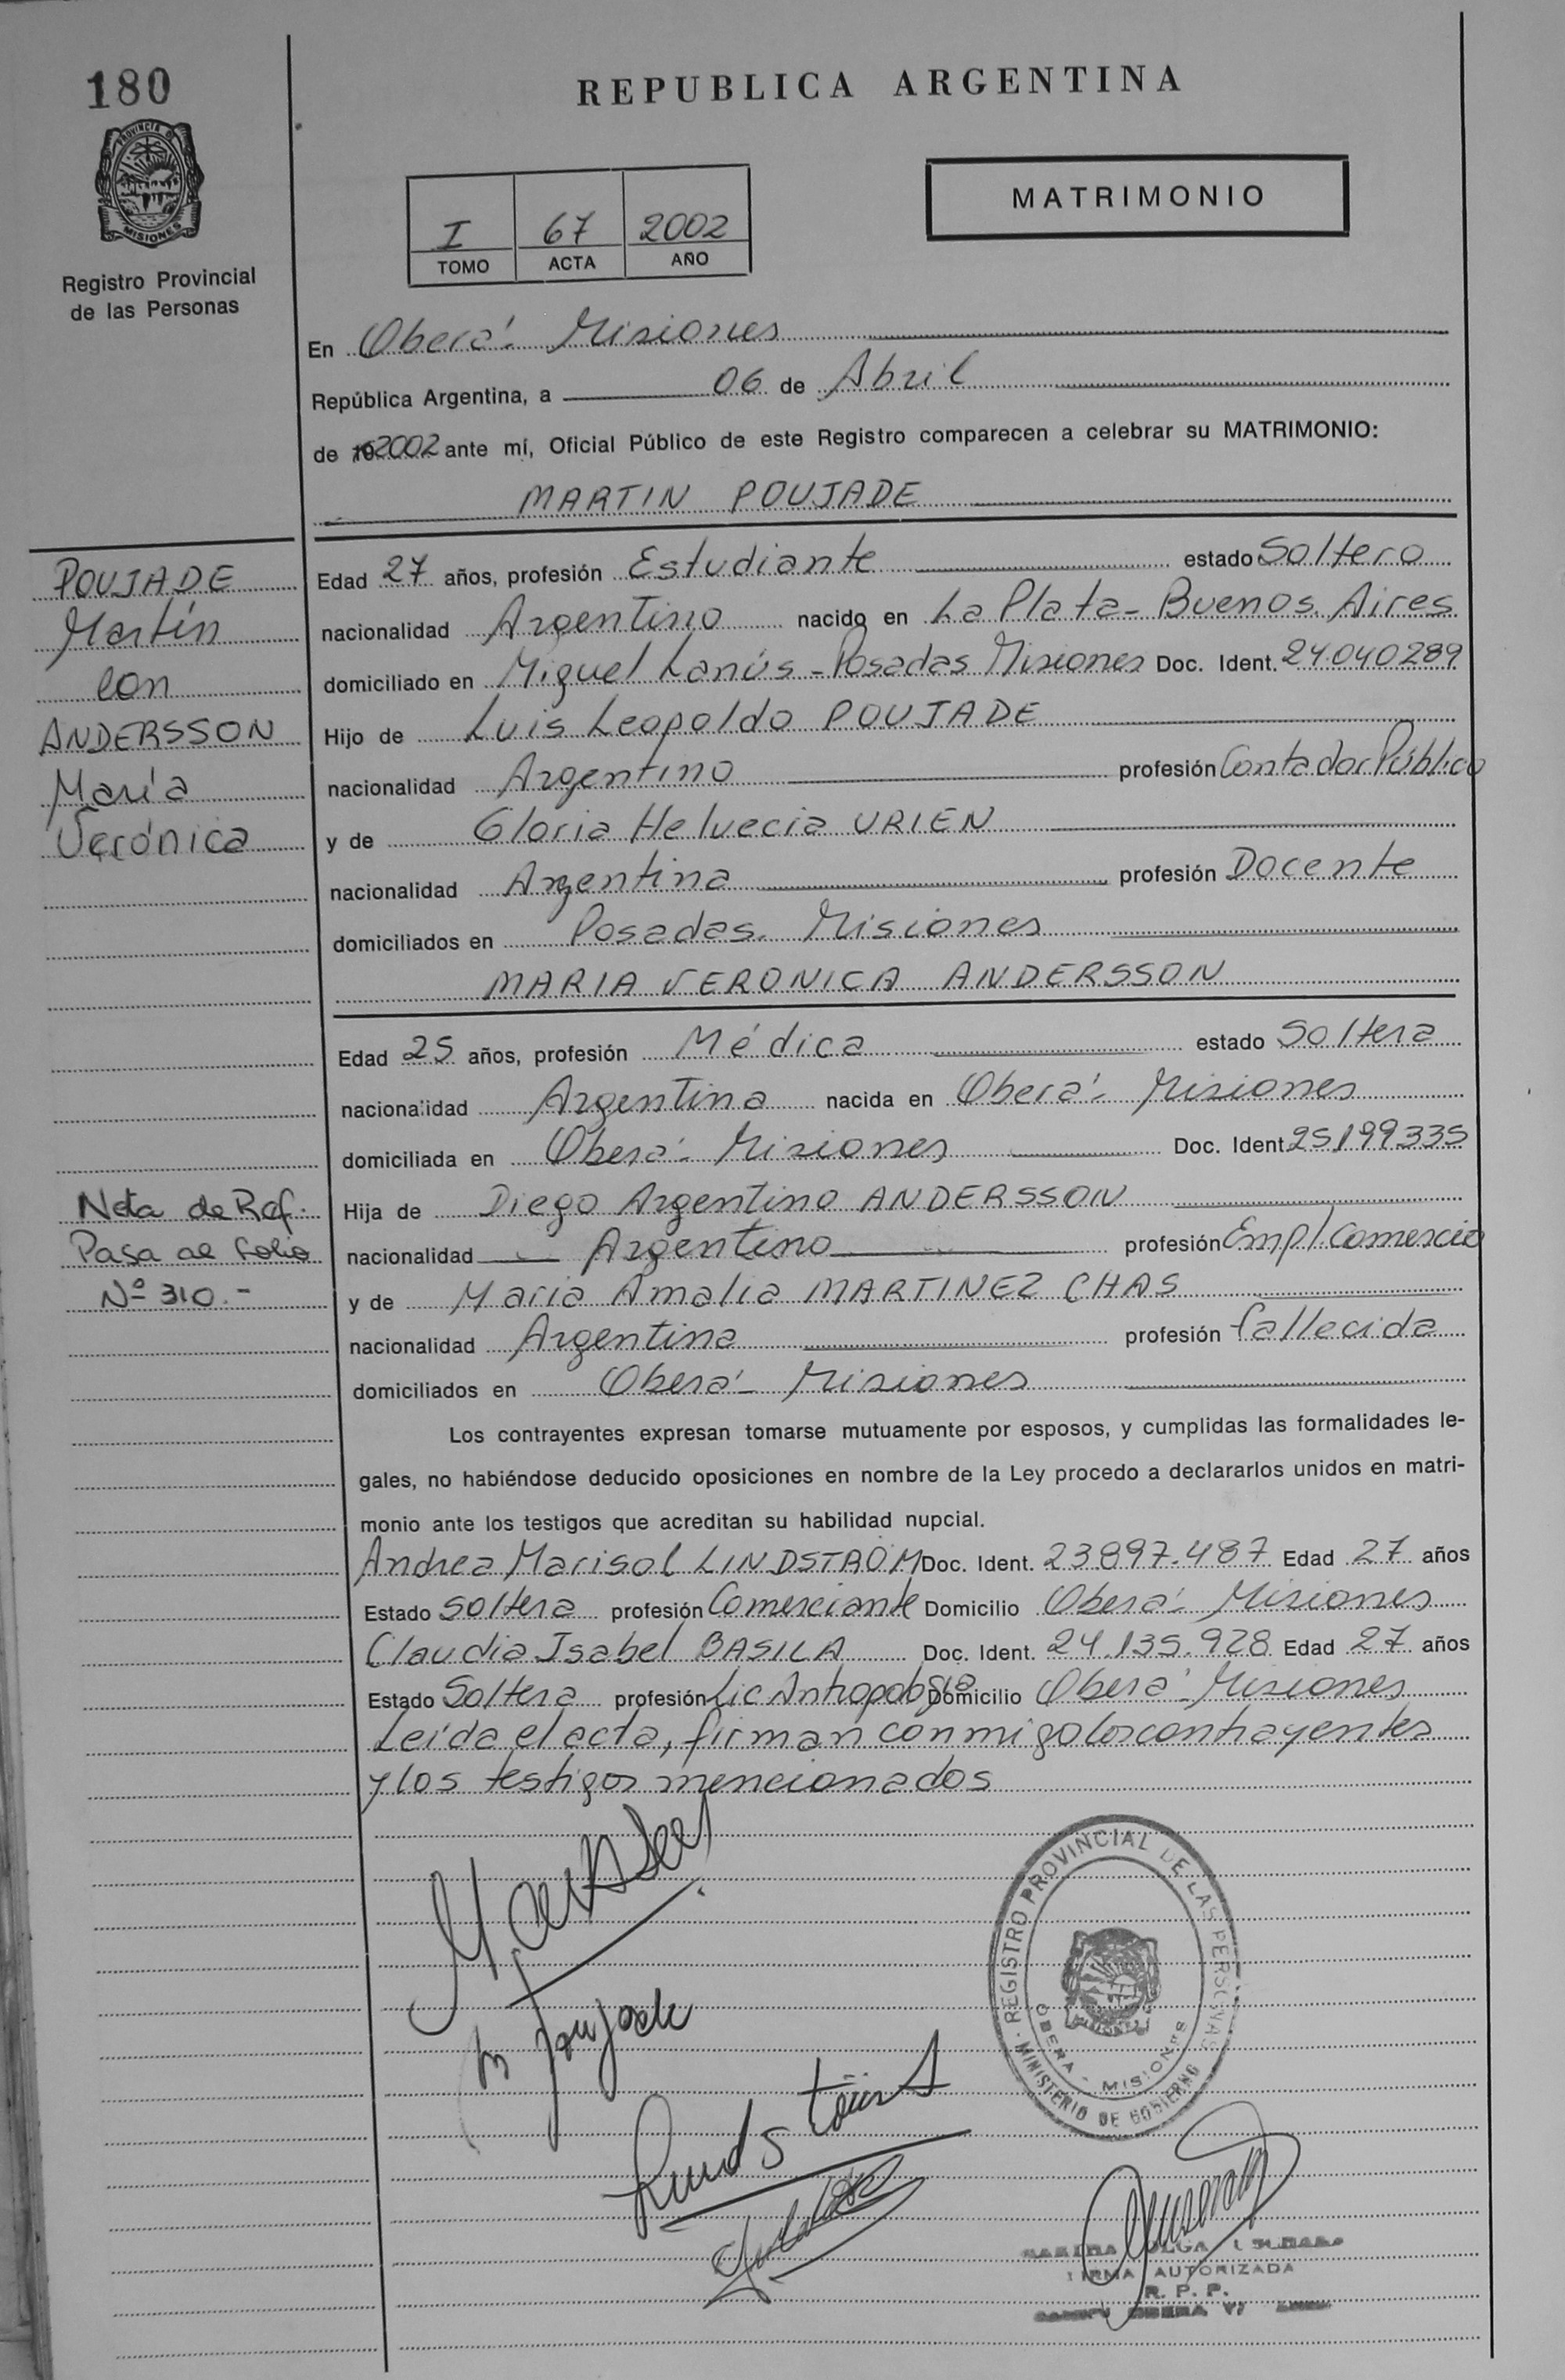 180
REPUBLICA ARGENTINA
PROVINCIA DE
MISIONES
Registro Provincial
de las Personas
I 67 2002
TOMO ACTA AÑO
MATRIMONIO
En Oberá - Misiones
República Argentina, a 06 de Abril
de 19 2002 ante mí, Oficial Público de este Registro comparecen a celebrar su MATRIMONIO:
MARTIN POUJADE
POUJADE
Martín
con
ANDERSSON
María
Verónica
Edad 27 años, profesión Estudiante estado Soltero
nacionalidad Argentino nacido en La Plata - Buenos Aires
domiciliado en Miguel Lanús - Posadas Misiones Doc. Ident. 24.040289
Hijo de Luis Leopoldo POUJADE
nacionalidad Argentino profesión Contador Público
y de Gloria Helvecia URIEN
nacionalidad Argentina profesión Docente
domiciliados en Posadas. Misiones
MARIA VERONICA ANDERSSON
Edad 25 años, profesión Médica estado Soltera
nacionalidad Argentina nacida en Oberá - Misiones
domiciliada en Oberá - Misiones Doc. Ident. 25199335
Nota de Ref.
Pasa al folio
Nº 310.-
Hija de Diego Argentino ANDERSSON
nacionalidad Argentino profesión Empl. Comercio
y de Maria Amalia MARTINEZ CHAS
nacionalidad Argentina profesión fallecida
domiciliados en Oberá - Misiones
Los contrayentes expresan tomarse mutuamente por esposos, y cumplidas las formalidades le-
gales, no habiéndose deducido oposiciones en nombre de la Ley procedo a declararlos unidos en matri-
monio ante los testigos que acreditan su habilidad nupcial.
Andrea Marisol LINDSTRÖM Doc. Ident. 23.897.487 Edad 27 años
Estado Soltera profesión Comerciante Domicilio Oberá - Misiones
Claudia Isabel BASILA Doc. Ident. 24.135.928 Edad 27 años
Estado Soltera profesión Lic Antropología Domicilio Oberá - Misiones
Leída el acta, firman conmigo los contrayentes
y los testigos mencionados
M Poujade
REGISTRO PROVINCIAL DE LAS PERSONAS
MINISTERIO DE GOBIERNO
OBERA - MISIONES
OLGA
FIRMA AUTORIZADA
R. P. P.
OBERA